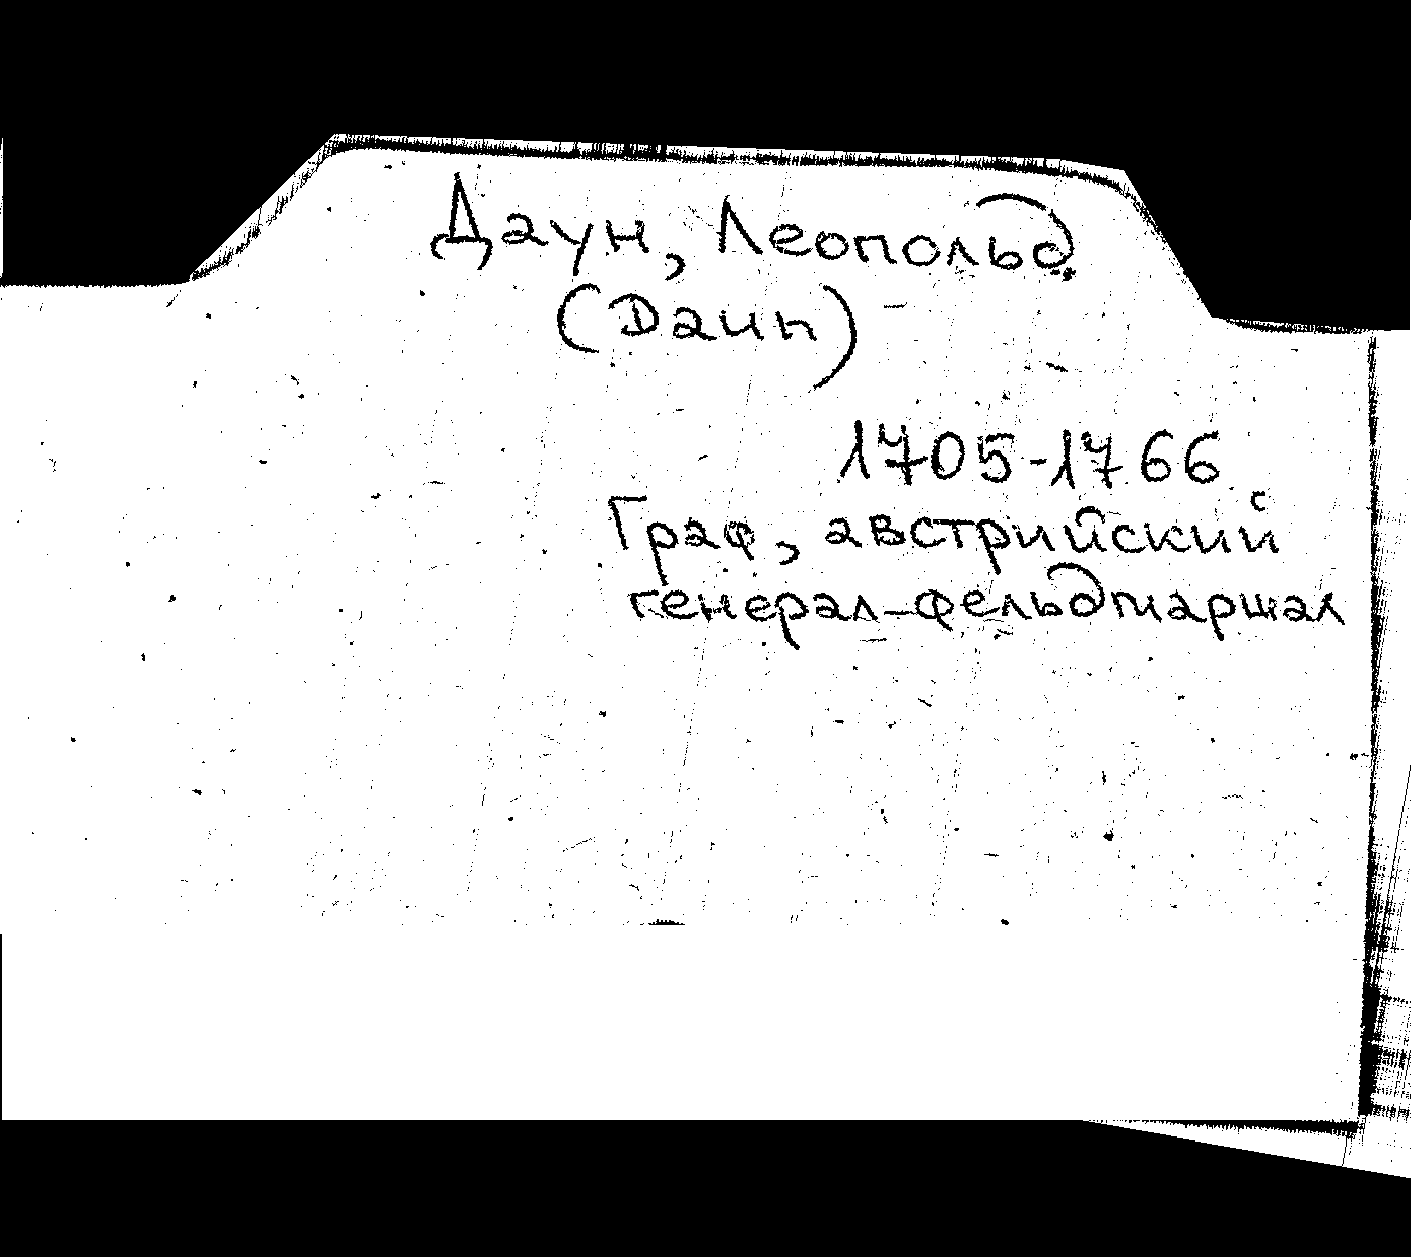 Даун, Леопольд
(Daun)
1705-1766
Граф, австрийский
генерал-фельдмаршал